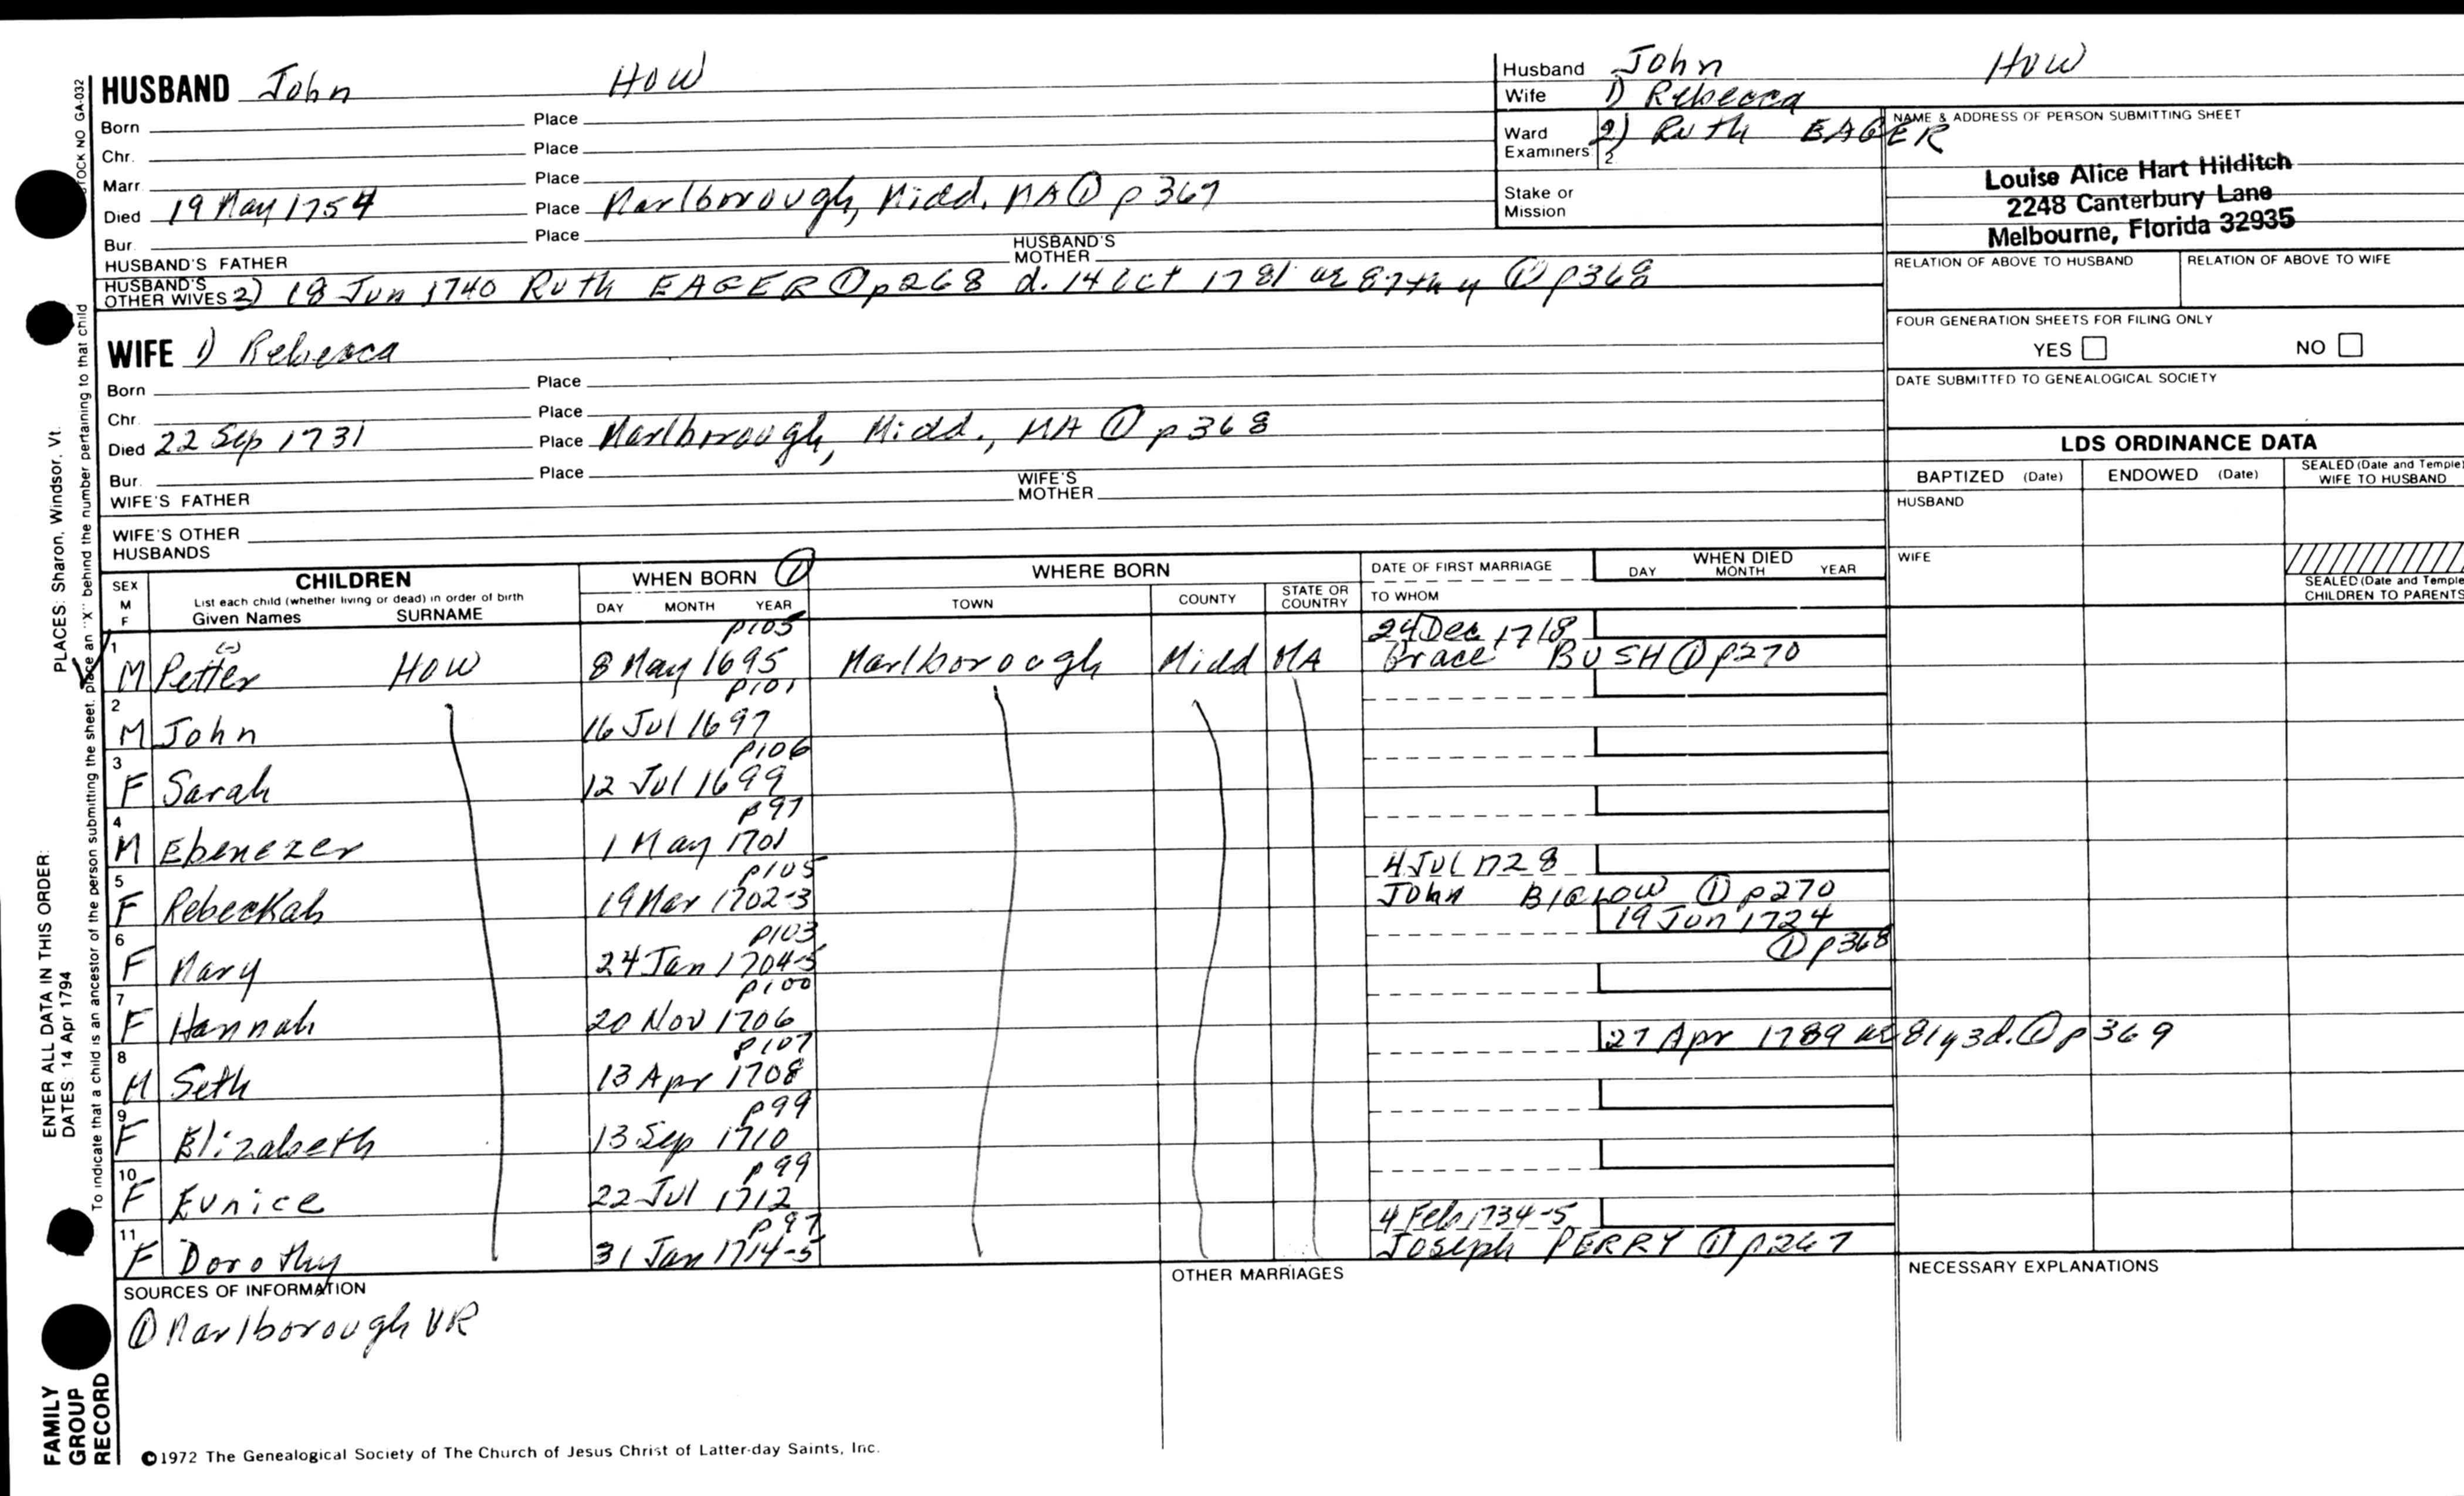 HUSBAND John HOW
Born Place
Chr. Place
Marr. Place
Died 19 May 1754 Place Marlborough, Midd. MA ① p 367
Bur. Place
HUSBAND'S FATHER HUSBAND'S MOTHER
HUSBAND'S OTHER WIVES 2) 18 Jun 1740 Ruth EAGER ① p268 d. 14 Oct 1781 ae 87th y ① p368
WIFE 1) Rebecca
Born Place
Chr. Place
Died 22 Sep 1731 Place Marlborough, Midd., MA ① p 368
Bur. Place
WIFE'S FATHER WIFE'S MOTHER
WIFE'S OTHER HUSBANDS
Husband John HOW
Wife 1) Rebecca
Ward Examiners 2) Ruth EAGER
2
Stake or Mission
NAME & ADDRESS OF PERSON SUBMITTING SHEET
Louise Alice Hart Hilditch
2248 Canterbury Lane
Melbourne, Florida 32935
RELATION OF ABOVE TO HUSBAND RELATION OF ABOVE TO WIFE
FOUR GENERATION SHEETS FOR FILING ONLY
YES NO
DATE SUBMITTED TO GENEALOGICAL SOCIETY
LDS ORDINANCE DATA
BAPTIZED (Date) ENDOWED (Date) SEALED (Date and Temple) WIFE TO HUSBAND
HUSBAND
WIFE
SEALED (Date and Temple) CHILDREN TO PARENTS
SEX M F CHILDREN WHEN BORN ① WHERE BORN DATE OF FIRST MARRIAGE WHEN DIED
List each child (whether living or dead) in order of birth
Given Names SURNAME DAY MONTH YEAR TOWN COUNTY STATE OR COUNTRY TO WHOM DAY MONTH YEAR
p105 24 Dec 1718
1 M Petter HOW 8 May 1695 Marlborough Midd MA Grace BUSH ① p270
p101
2 M John 16 Jul 1697
p106
3 F Sarah 12 Jul 1699
p97
4 M Ebenezer 1 May 1701
p105 4 Jul 1728
5 F Rebeckah 19 Mar 1702-3 John BIGLOW ① p270
p103 19 Jun 1724
6 F Mary 24 Jan 1704-5 ① p368
p100
7 F Hannah 20 Nov 1706
p107 27 Apr 1789 ae 81y 3d. ① p 369
8 M Seth 13 Apr 1708
p99
9 F Elizabeth 13 Sep 1710
p99
10 F Eunice 22 Jul 1712
p97 4 Feb 1734-5
11 F Dorothy 31 Jan 1714-5 Joseph PERRY ① p267
SOURCES OF INFORMATION OTHER MARRIAGES NECESSARY EXPLANATIONS
① Marlborough VR
©1972 The Genealogical Society of The Church of Jesus Christ of Latter-day Saints, Inc.
STOCK NO GA-032
To indicate that a child is an ancestor of the person submitting the sheet, place an "X" behind the number pertaining to that child
PLACES: Sharon, Windsor, Vt.
ENTER ALL DATA IN THIS ORDER:
DATES: 14 Apr 1794
FAMILY
GROUP
RECORD